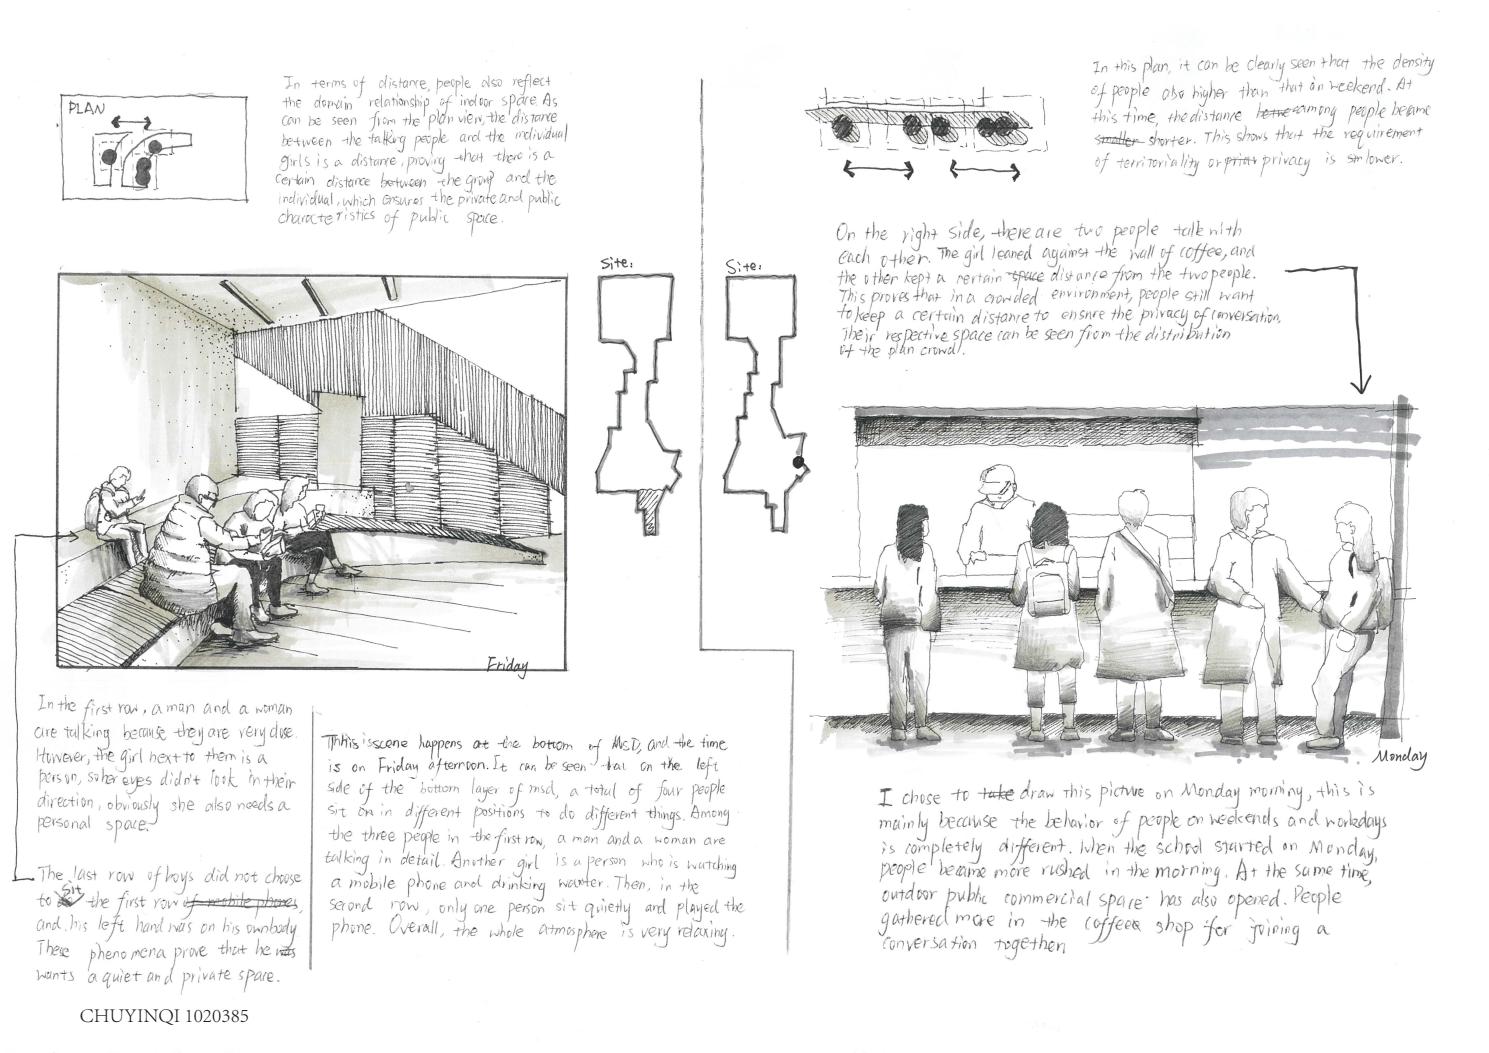 PLAN
In terms of distance, people also reflect
the domain relationship of indoor space. As
can be seen from the plan view, the distance
between the talking people and the individual
girls is a distance, proving that there is a
certain distance between the group and the
individual, which ensures the private and public
characteristics of public space.
Site:
Friday
In the first row, a man and a woman
are talking because they are very close.
However, the girl next to them is a
person, so her eyes didn't look in their
direction, obviously she also needs a
personal space.
The last row of boys did not choose
to sit the first row of mobile phones,
and his left hand was on his own body
These phenomena prove that he was
wants a quiet and private space.
This is scene happens at the bottom of MsD, and the time
is on Friday afternoon. It can be seen that on the left
side of the bottom layer of msd, a total of four people
sit on in different positions to do different things. Among
the three people in the first row, a man and a woman are
talking in detail. Another girl is a person who is watching
a mobile phone and drinking wanter. Then, in the
second row, only one person sit quietly and played the
phone. Overall, the whole atmosphere is very relaxing.
CHUYINQI 1020385
In this plan, it can be clearly seen that the density
of people also higher than that on weekend. At
this time, the distance among people became
smaller shorter. This shows that the requirement
of territoriality or privacy is lower.
On the right side, there are two people talk with
each other. The girl leaned against the wall of coffee, and
the other kept a certain space distance from the two people.
This proves that in a crowded environment, people still want
to keep a certain distance to ensure the privacy of conversation.
Their respective space can be seen from the distribution
of the plan crowd.
Site:
Monday
I chose to take draw this picture on Monday morning, this is
mainly because the behavior of people on weekends and workdays
is completely different. When the school started on Monday,
people became more rushed in the morning. At the same time,
outdoor public commercial space has also opened. People
gathered more in the coffee shop for joining a
conversation together